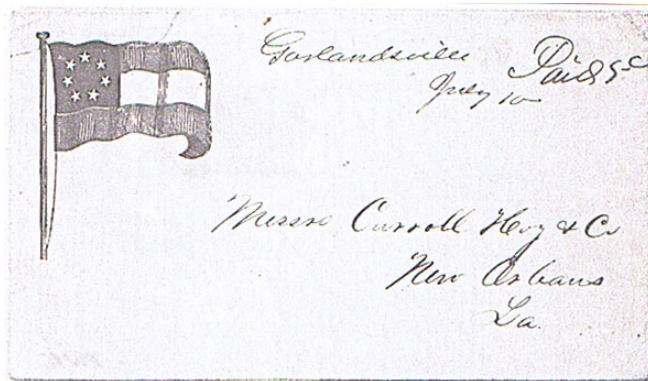 Garlandsville Paid 5c
July 10
Messrs Carroll Hoy & Co
New Orleans
La.